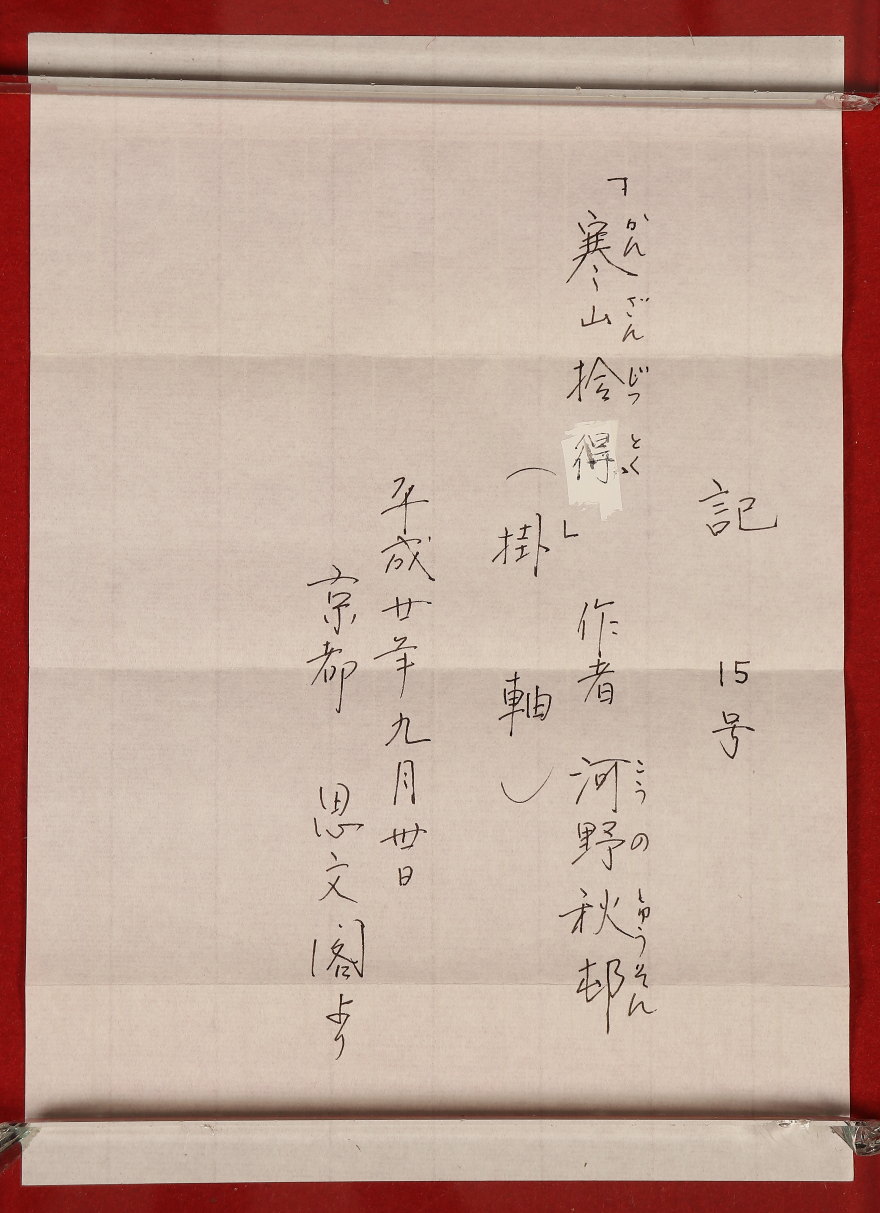 記 15号
「寒山拾得」 作者 河野秋邨
かんざんじっとく こうのしゅうそん
（掛軸）
平成廿年九月卅日
京都 思文閣より